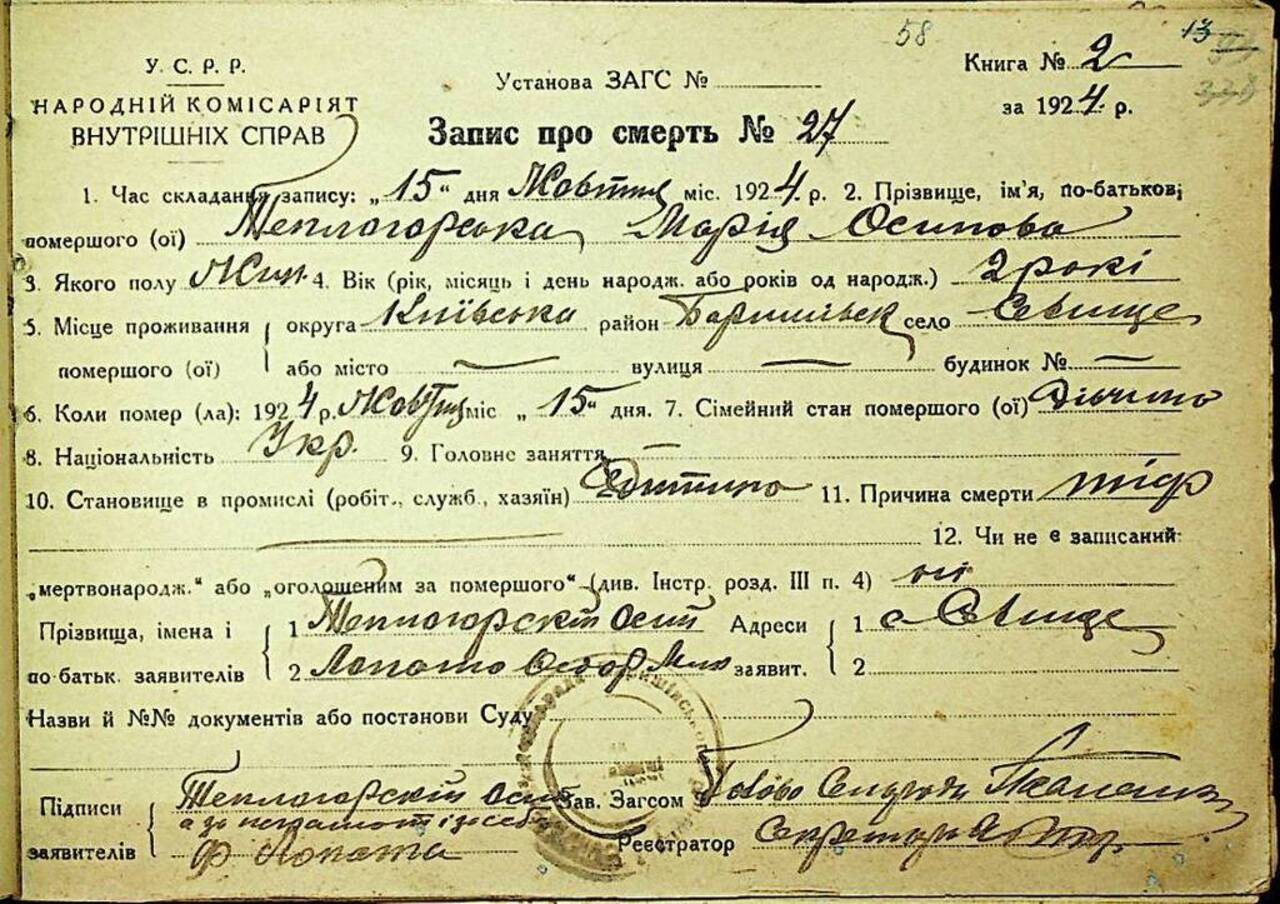 58
13
У. С. Р. Р.
НАРОДНІЙ КОМІСАРІЯТ
ВНУТРІШНІХ СПРАВ
Установа ЗАГС №
Книга № 2
за 1924 р.
Запис про смерть № 27
1. Час складання запису: „15“ дня Жовтня міс. 1924 р. 2. Прізвище, ім'я, по-батькові
помершого (ої) Теплогорська Марія Осипова
3. Якого полу Жин. 4. Вік (рік, місяць і день народж. або років од народж.) 2 рокі
5. Місце проживання округа Київська район село Світище
помершого (ої) або місто — вулиця — будинок № —
6. Коли помер (ла): 1924 р. Жовтня міс „15“ дня. 7. Сімейний стан помершого (ої)
8. Національність Укр. 9. Головне заняття —
10. Становище в промислі (робіт., служб., хазяїн) 11. Причина смерти тіф
12. Чи не є записаний
„мертвонародж.“ або „оголошеним за помершого“ (див. Інстр. розд. III п. 4) ні
Прізвища, імена і 1 Теплогорскій Осип Адреси 1 с
по-батьк. заявителів 2 Лопата заявит. 2
Назви й №№ документів або постанови Суду
Підписи Теплогорскій Зав. Загсом
а за
заявителів Ф Лопата Реєстратор Секретарь